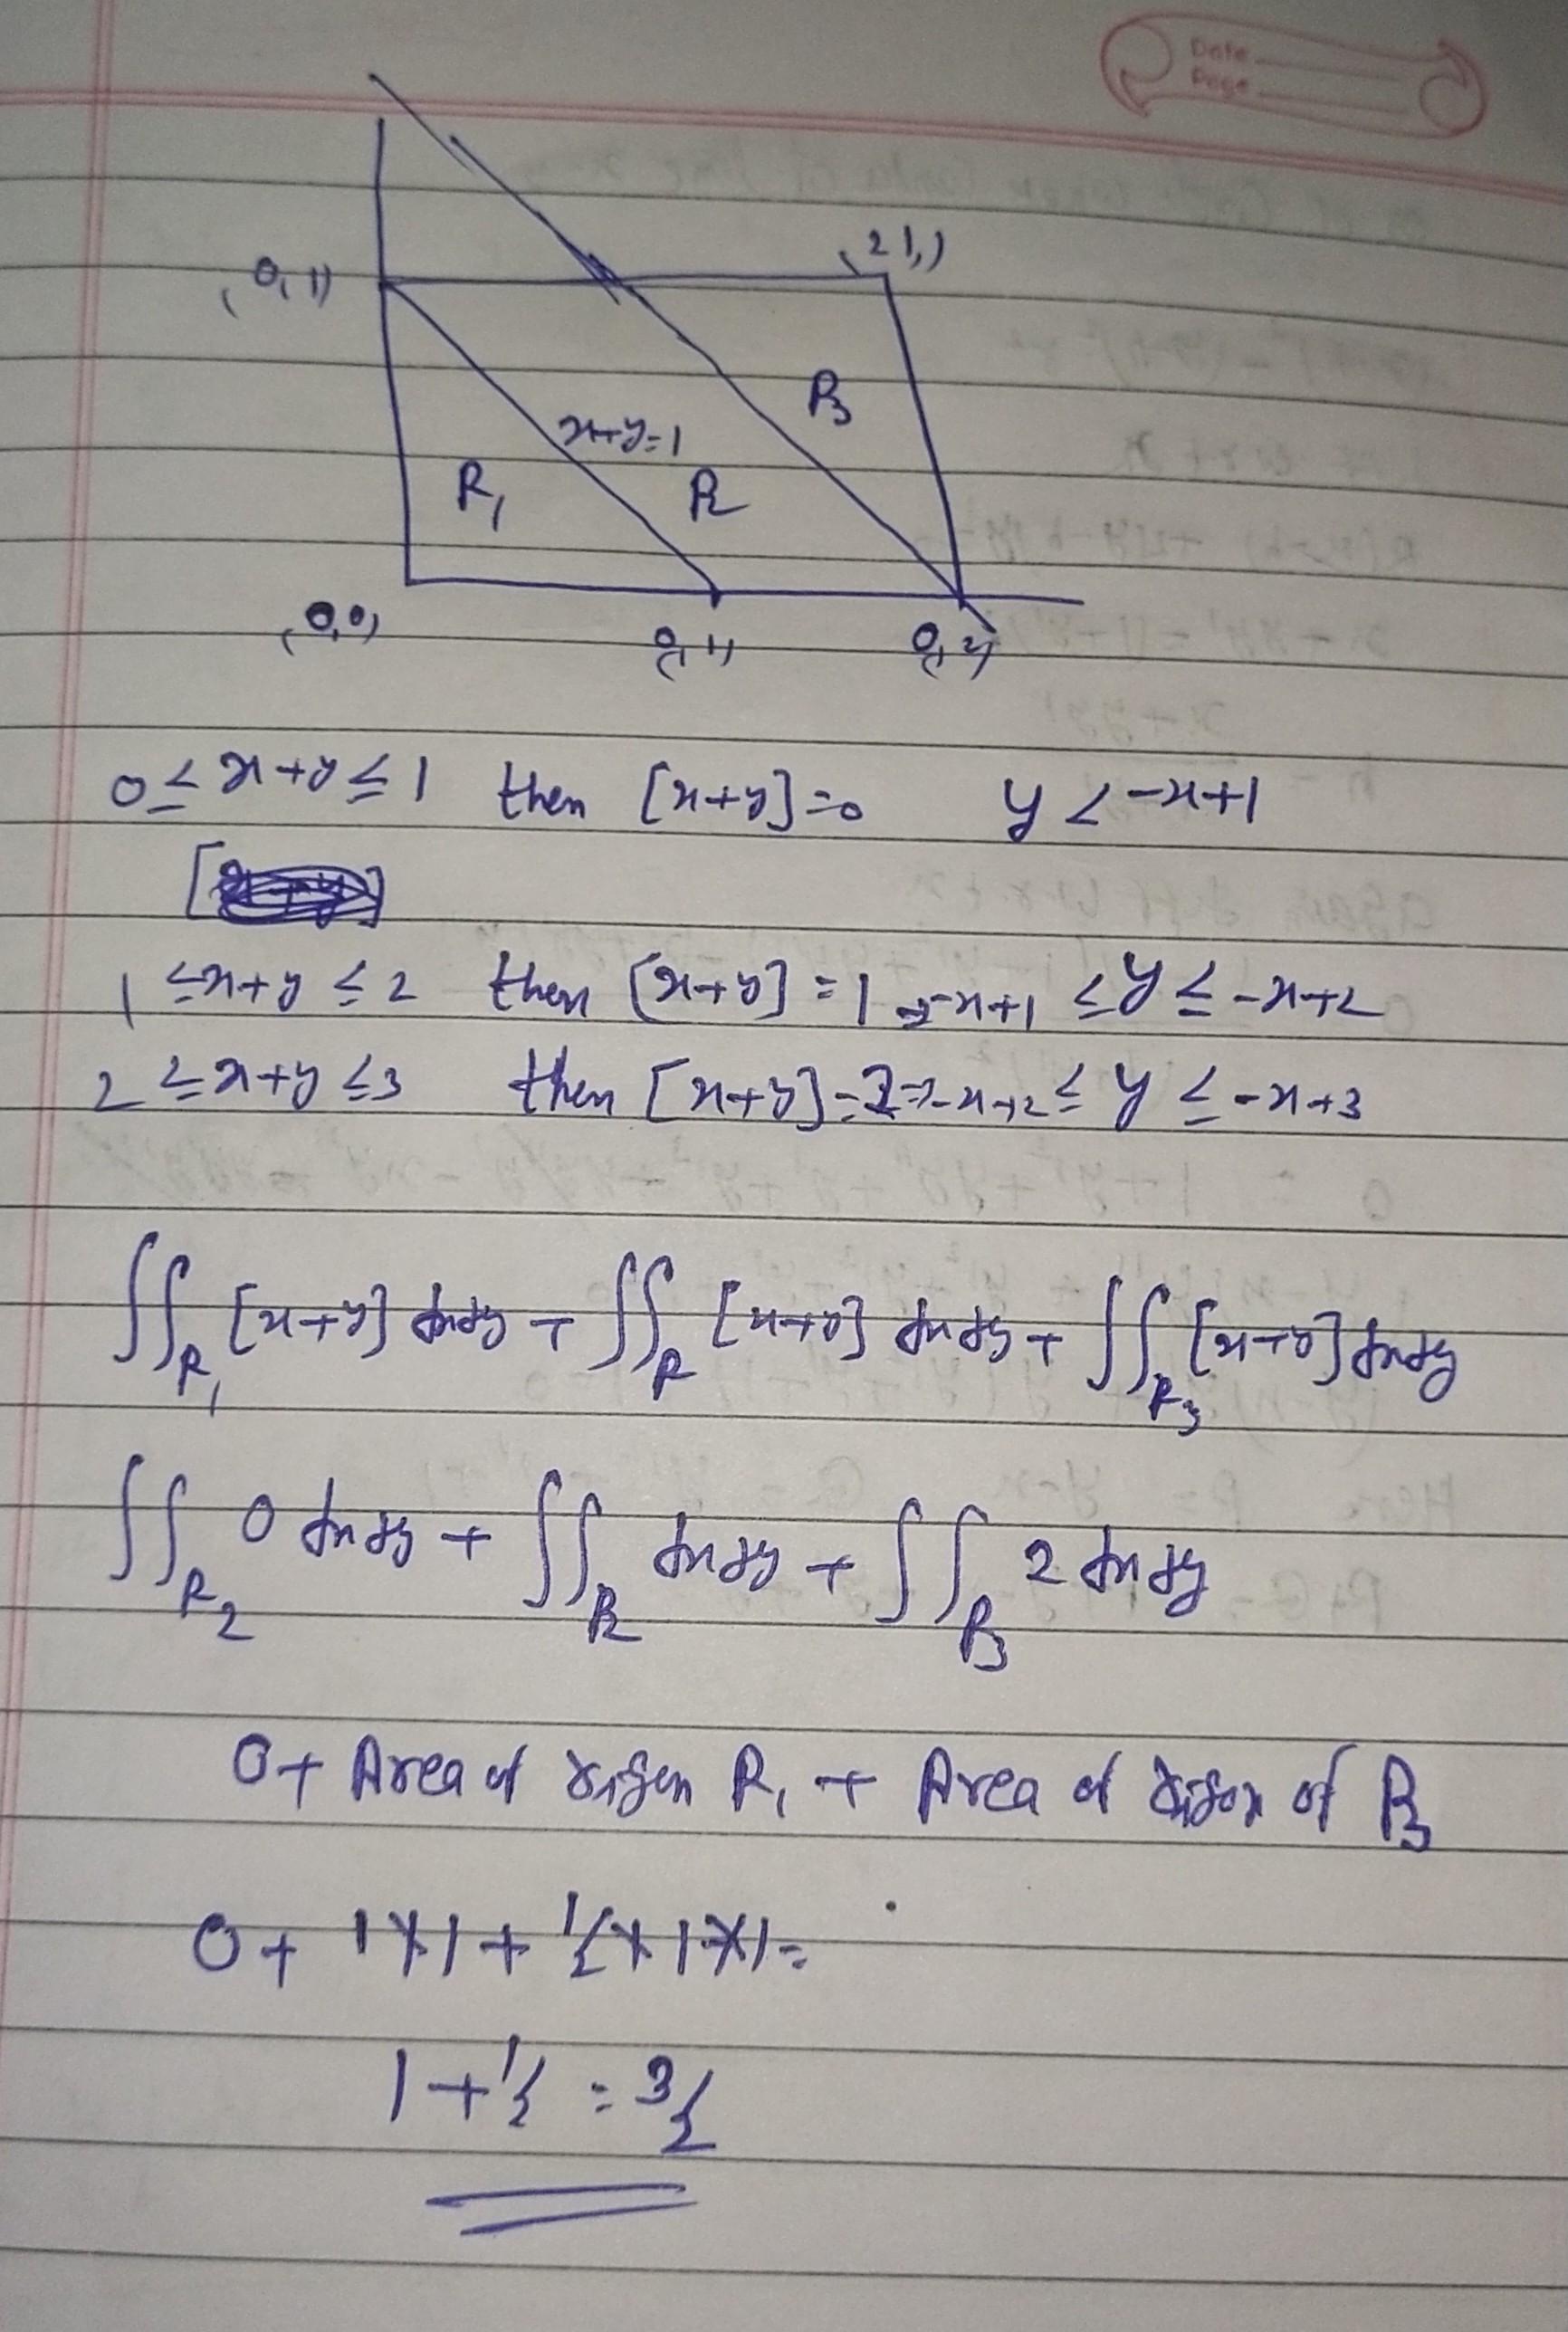 Date
Page
(0,1)
(2 1,)
R3
x+y=1
R1 R2
(0,0) (0,1) (0,2)
0 ≤ x+y ≤ 1 then [x+y]=0 y < -x+1
1 ≤ x+y ≤ 2 then [x+y] = 1 ⇒ -x+1 ≤ y ≤ -x+2
2 ≤ x+y ≤ 3 then [x+y] = 2 ⇒ -x+2 ≤ y ≤ -x+3
∬R1 [x+y] dxdy + ∬R [x+y] dxdy + ∬R3 [x+y] dxdy
∬R2 0 dxdy + ∬R2 dxdy + ∬R3 2 dxdy
0 + Area of R1 + Area of of R3
0 + 1×1 + 1/2 × 1×1 =
1 + 1/2 = 3/2